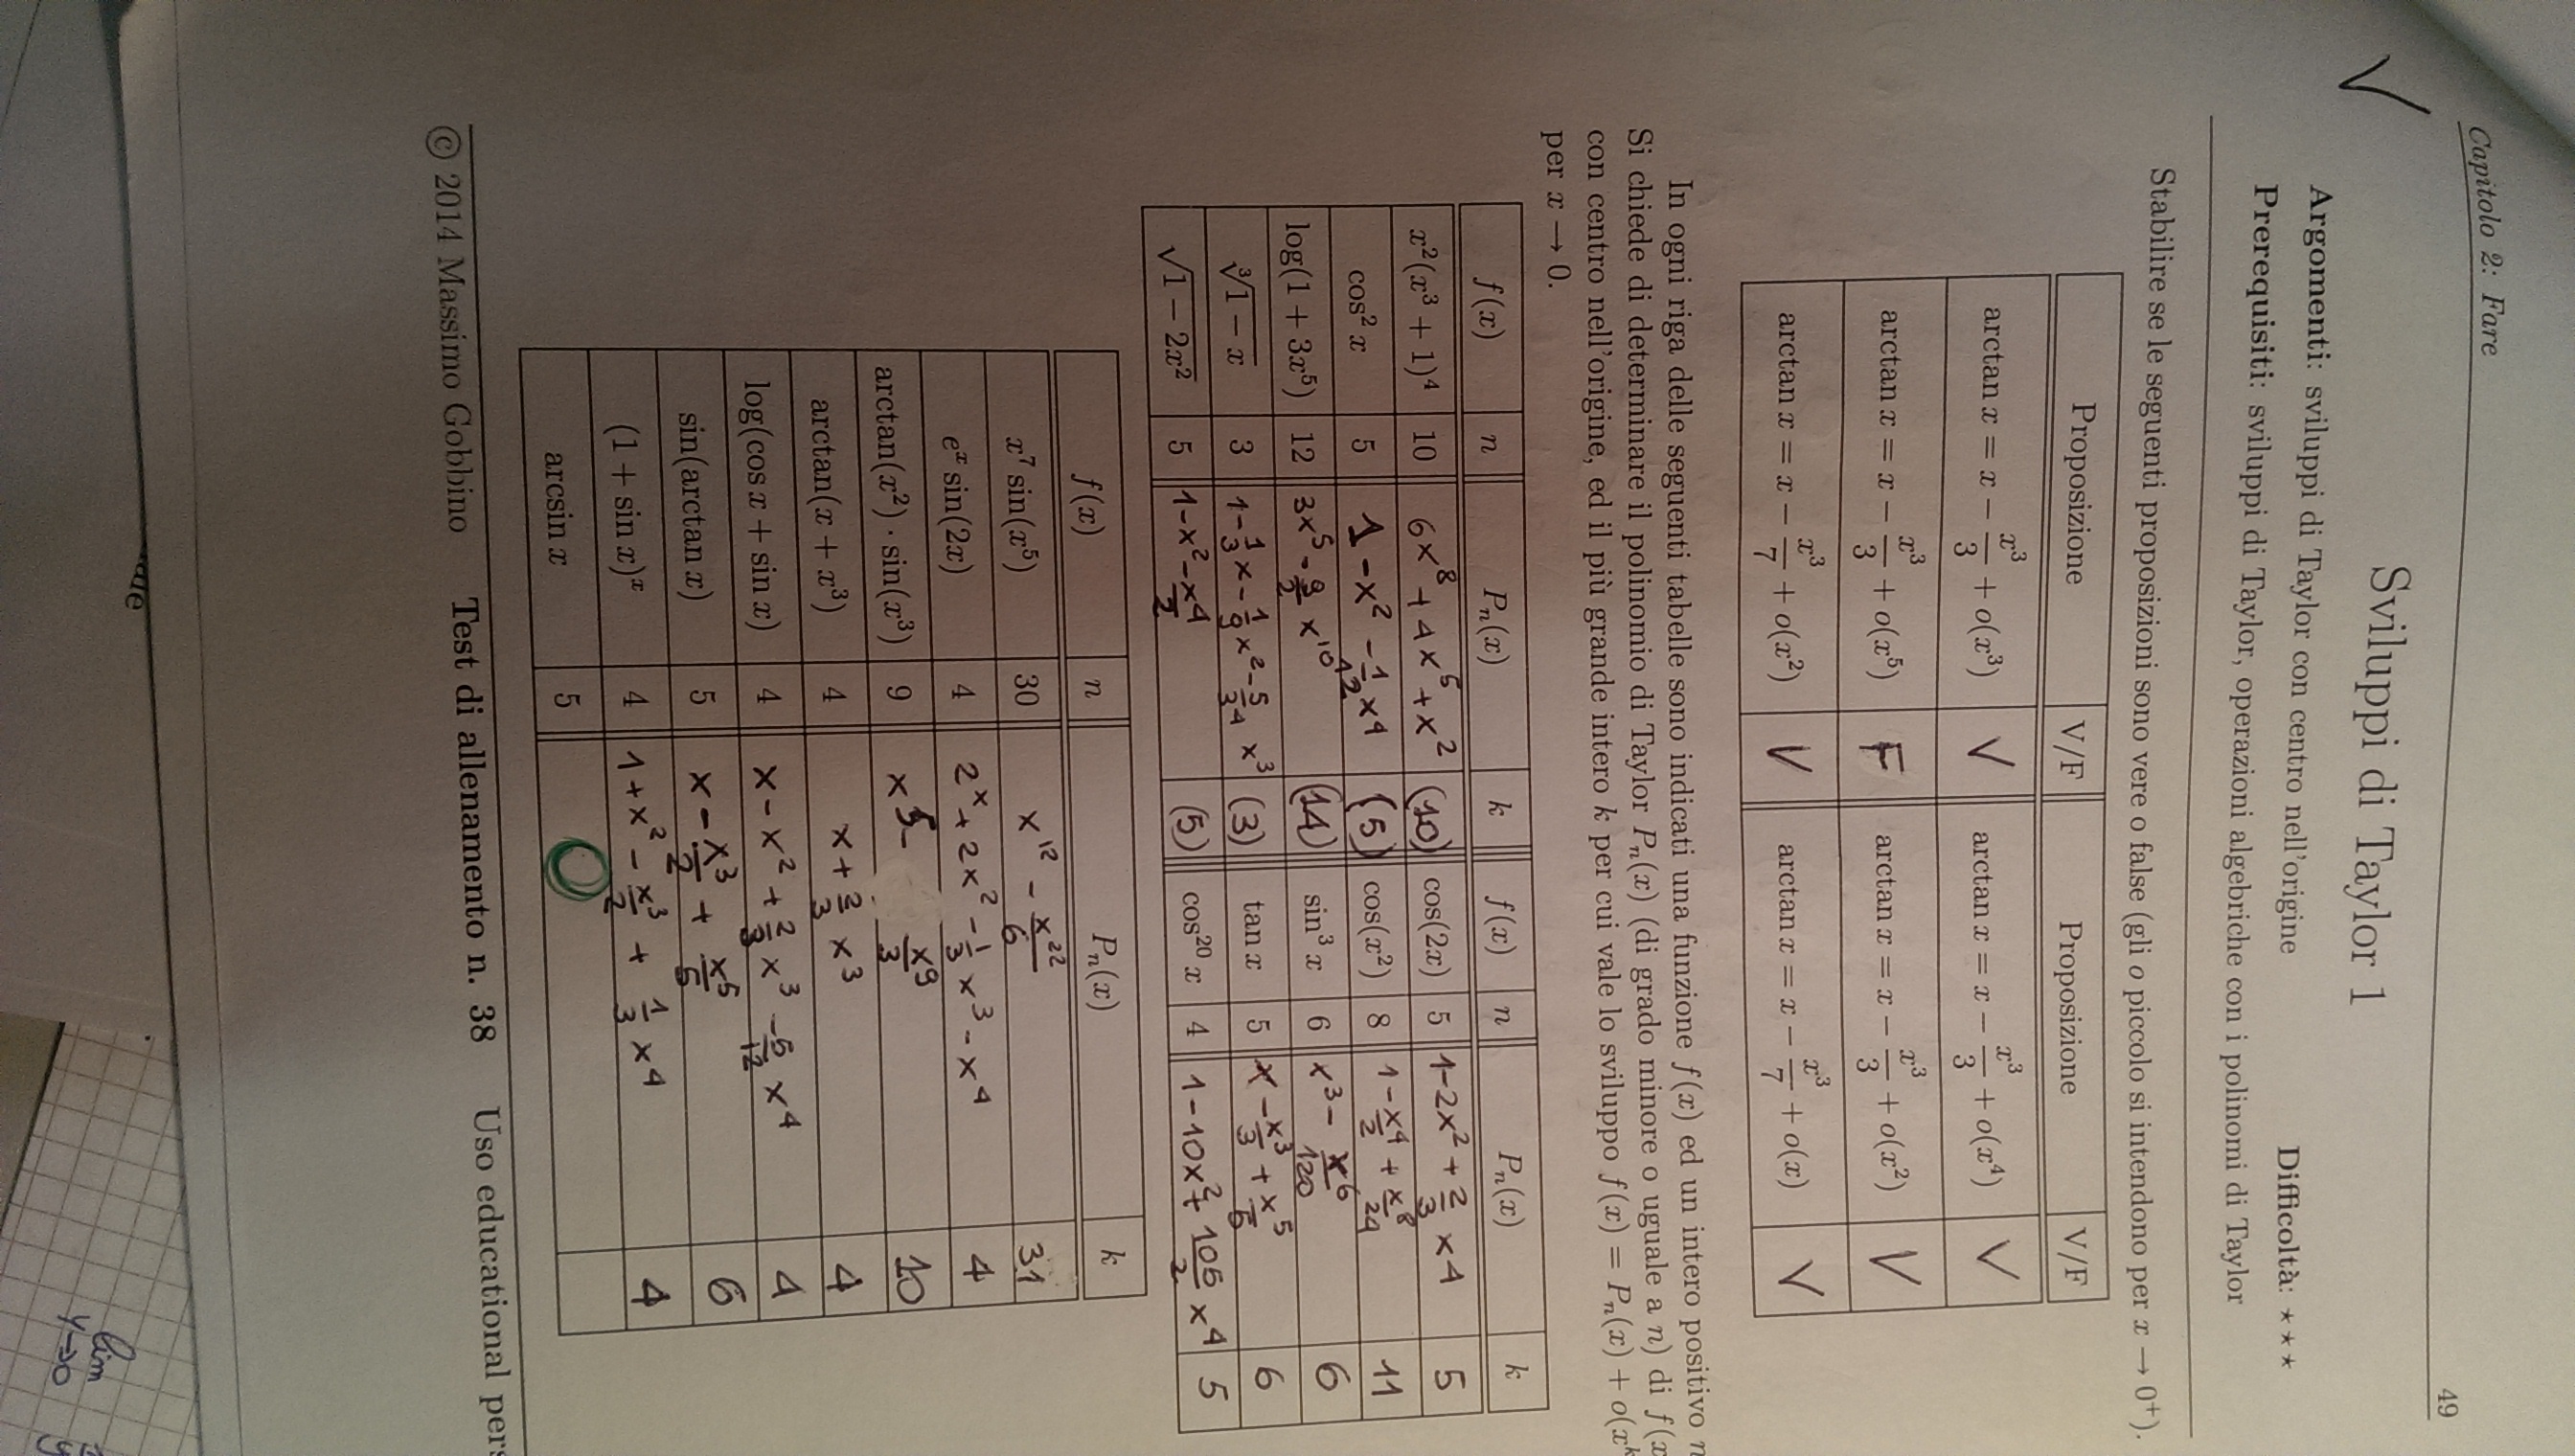 Capitolo 2: Fare 49
Sviluppi di Taylor 1
Argomenti: sviluppi di Taylor con centro nell'origine Difficoltà: ⋆ ⋆ ⋆
Prerequisiti: sviluppi di Taylor, operazioni algebriche con i polinomi di Taylor
Stabilire se le seguenti proposizioni sono vere o false (gli o piccolo si intendono per x → 0⁺).
Proposizione V/F Proposizione V/F
arctan x = x − x³/3 + o(x³) V arctan x = x − x³/3 + o(x⁴) V
arctan x = x − x³/3 + o(x⁵) F arctan x = x − x³/3 + o(x²) V
arctan x = x − x³/7 + o(x²) V arctan x = x − x³/7 + o(x) V
In ogni riga delle seguenti tabelle sono indicati una funzione f(x) ed un intero positivo n
Si chiede di determinare il polinomio di Taylor Pₙ(x) (di grado minore o uguale a n) di f(x
con centro nell'origine, ed il più grande intero k per cui vale lo sviluppo f(x) = Pₙ(x) + o(xᵏ
per x → 0.
f(x) n Pₙ(x) k f(x) n Pₙ(x) k
x²(x³ + 1)⁴ 10 6x⁸ + 4x⁵ + x² (10) cos(2x) 5 1-2x² + 2/3 x⁴ 5
cos² x 5 1 - x² - 1/12 x⁴ (5) cos(x²) 8 1 - x⁴/2 + x⁸/24 11
log(1 + 3x⁵) 12 3x⁵ - 9/2 x¹⁰ (14) sin³ x 6 x³ - x⁶/120 6
∛(1 − x) 3 1 - 1/3 x - 1/9 x² - 5/34 x³ (3) tan x 5 x - x³/3 + x⁵/5 6
√(1 − 2x²) 5 1 - x² - x⁴/2 (5) cos²⁰ x 4 1 - 10x² + 105/2 x⁴ 5
f(x) n Pₙ(x) k
x⁷ sin(x⁵) 30 x¹² - x²²/6 31
eˣ sin(2x) 4 2x + 2x² - 1/3 x³ - x⁴ 4
arctan(x²) · sin(x³) 9 x⁵ - x⁹/3 10
arctan(x + x³) 4 x + 2/3 x³ 4
log(cos x + sin x) 4 x - x² + 2/3 x³ - 5/12 x⁴ 4
sin(arctan x) 5 x - x³/2 + x⁵/5 6
(1 + sin x)ˣ 4 1 + x² - x³/2 + 1/3 x⁴ 4
arcsin x 5
© 2014 Massimo Gobbino Test di allenamento n. 38 Uso educational pers
lim
y→0